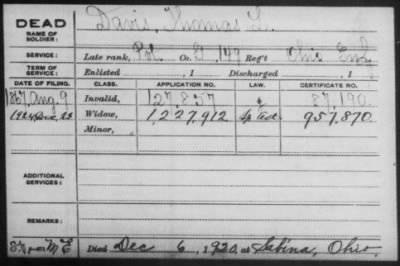 DEAD
NAME OF SOLDIER:
Davis, Thomas L.
SERVICE:
Late rank, Pvt. Co. G, 149 Reg't Ohio Inf
TERM OF SERVICE:
Enlisted , 1 Discharged , 1
DATE OF FILING. CLASS. APPLICATION NO. LAW. CERTIFICATE NO.
1867, Aug. 9 Invalid, 127,857 87,190.
Widow, 1,227,912 957,870.
Minor,
ADDITIONAL SERVICES:
REMARKS:
Died Dec 6, 1920, at Sabina, Ohio.